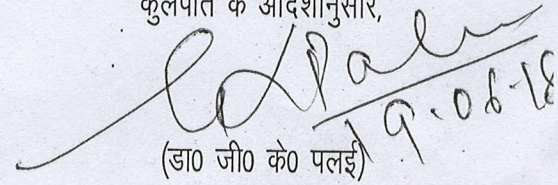 कुलपति के आदेशानुसार,
19.06.18
(डा0 जी0 के0 पलई)